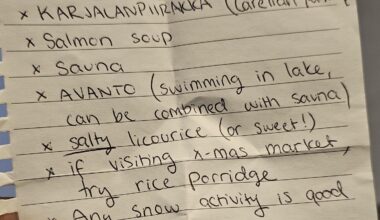 × KARJALANPIIRAKKA (Carelian
× Salmon soup
× Sauna
× AVANTO (swimming in lake,
can be combined with sauna)
× salty licourice (or sweet!)
× if visiting x-mas market,
try rice porridge
× Any snow activity is good